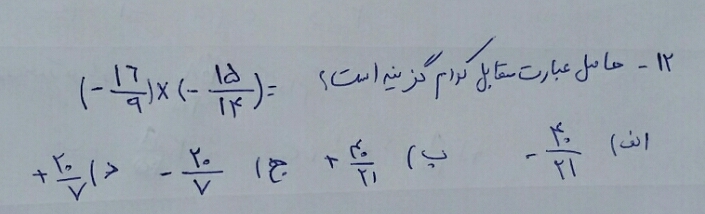 ۱۲ - حاصل عبارت مقابل کدام گزینه است؟ (-۱۶/۹)×(-۱۵/۱۴)=
الف) -۴۰/۲۱ ب) +۴۰/۲۱ ج) -۲۰/۷ د) +۲۰/۷